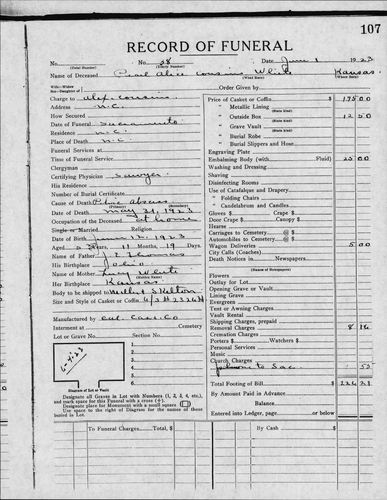 107
RECORD OF FUNERAL
No. No. 58 Date June 1 1923
(Total Number) (Yearly Number)
Name of Deceased Pearl Alice Cousins White Kansas.
Charge to Alex. Cousins Order Given by
Address N.C.
How Secured
Date of Funeral Sacramento
Residence N.C.
Place of Death N.C.
Funeral Services at
Time of Funeral Service
Clergyman
Certifying Physician Sawyer
His Residence
Number of Burial Certificate
Cause of Death Pelvic Abscess
(Primary) (Secondary)
Date of Death May 31, 1923
Occupation of the Deceased at home
Single or Married Religion
Date of Birth
Aged Years, 11 Months, 19 Days.
Name of Father J. E. Thomas
His Birthplace Ohio
Name of Mother Lucy White
(Maiden Name)
Her Birthplace Kansas
Body to be shipped to
Size and Style of Casket or Coffin
Manufactured by Cal. Cas. Co
Interment at Cemetery
Lot or Grave No. Section No.
6-4-23
1.
2.
3.
4.
5.
6.
Diagram of Lot or Vault
Designate all Graves in Lot with Numbers (1, 2, 3, 4, etc.),
and mark space for this Funeral with a cross (+).
Designate place for Monument with a small square
Use space to the right of Diagram for the names of those
buried in Lot.
Price of Casket or Coffin 175 00
" Metallic Lining
(State Kind)
" Outside Box 12 50
(State Kind)
" Grave Vault
(State Kind)
" Burial Robe
(State Kind)
" Burial Slippers and Hose
Engraving Plate
Embalming Body (with Fluid) 25 00
Washing and Dressing
Shaving
Disinfecting Rooms
Use of Catafalque and Drapery
" Folding Chairs
" Candelabrum and Candles
Gloves $ Crape $
Door Crape $ Canopy $
Hearse
Carriages to Cemetery @ $
Automobiles to Cemetery @ $
Wagon Deliveries 5 00
City Calls (Coaches)
Death Notices in Newspapers
(Names of Newspapers)
Flowers
Outlay for Lot
Opening Grave or Vault
Lining Grave
Evergreen
Tent or Awning Charges
Vault Rental
Shipping Charges, prepaid
Removal Charges 8 16
Cremation Charges
Porters $ Watchers $
Personal Services
Music
Church Charges
phone to Sac. 55
Total Footing of Bill $
By Amount Paid in Advance
Balance
Entered into Ledger, page or below
To Funeral Charges Total, $ By Cash $